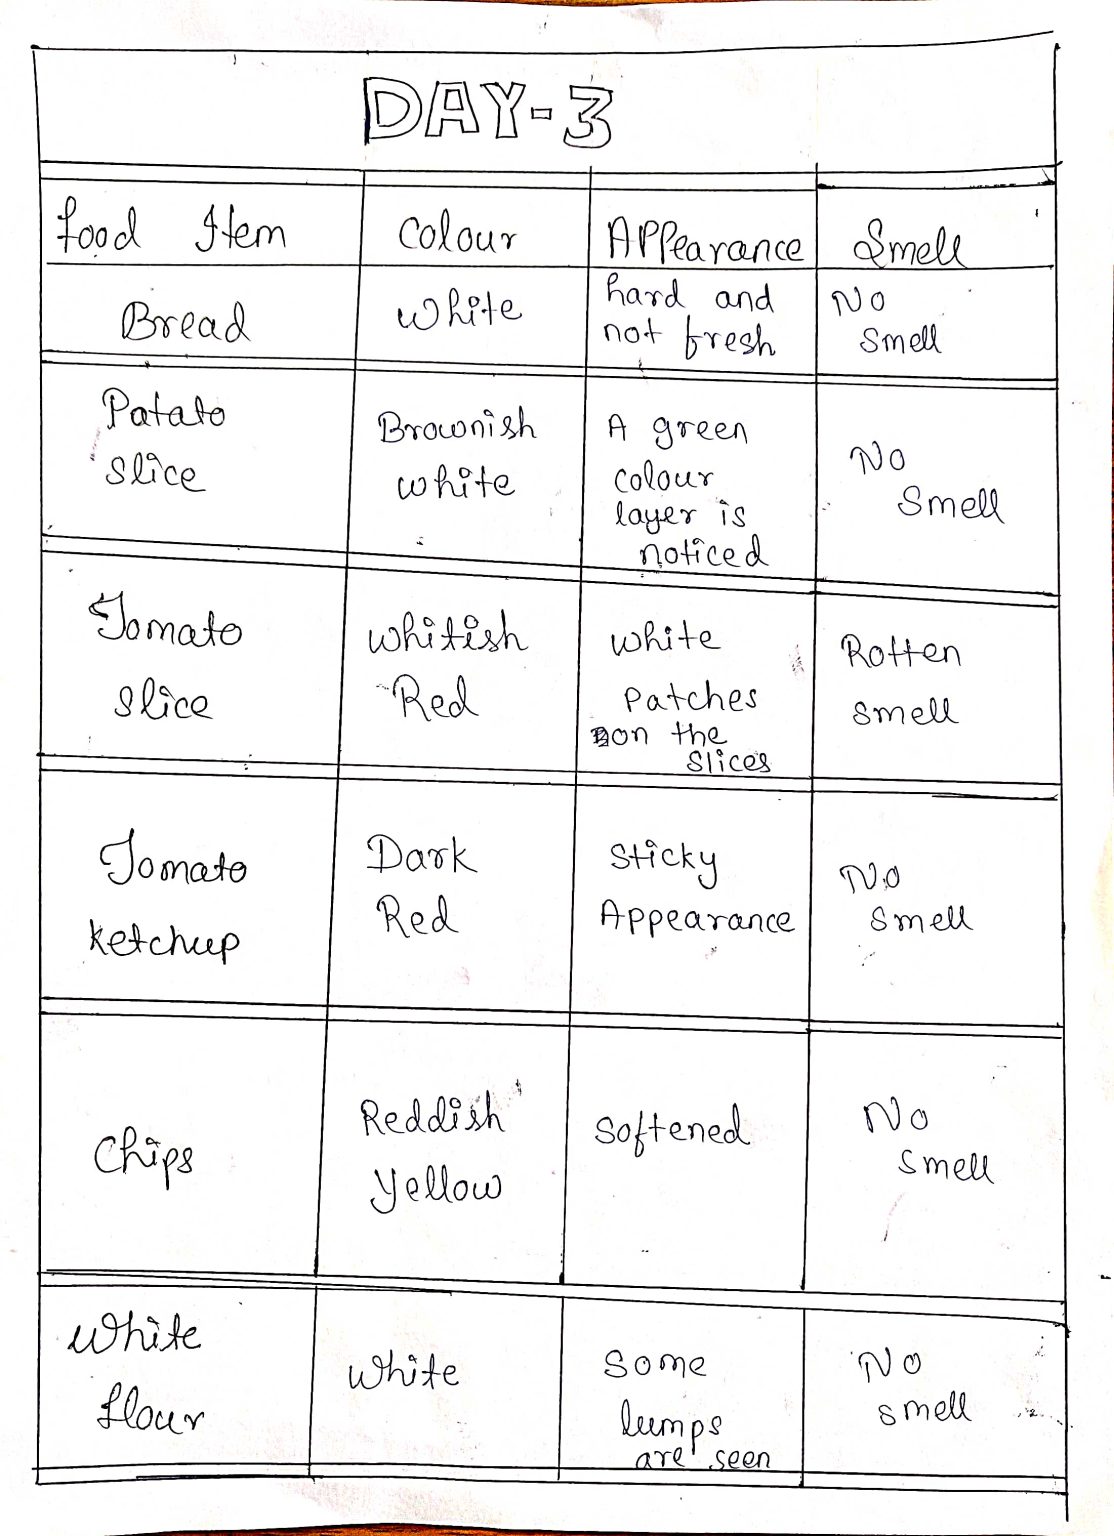 DAY-3
Food Item Colour Appearance Smell
Bread White hard and No
not fresh Smell
Patato Brownish A green No
Slice white colour Smell
layer is
noticed
Tomato Whitish White Rotten
Slice Red Patches smell
on the
Slices
Tomato Dark Sticky No
ketchup Red Appearance Smell
Chips Reddish Softened No
Yellow Smell
White White Some No
flour lumps smell
are seen